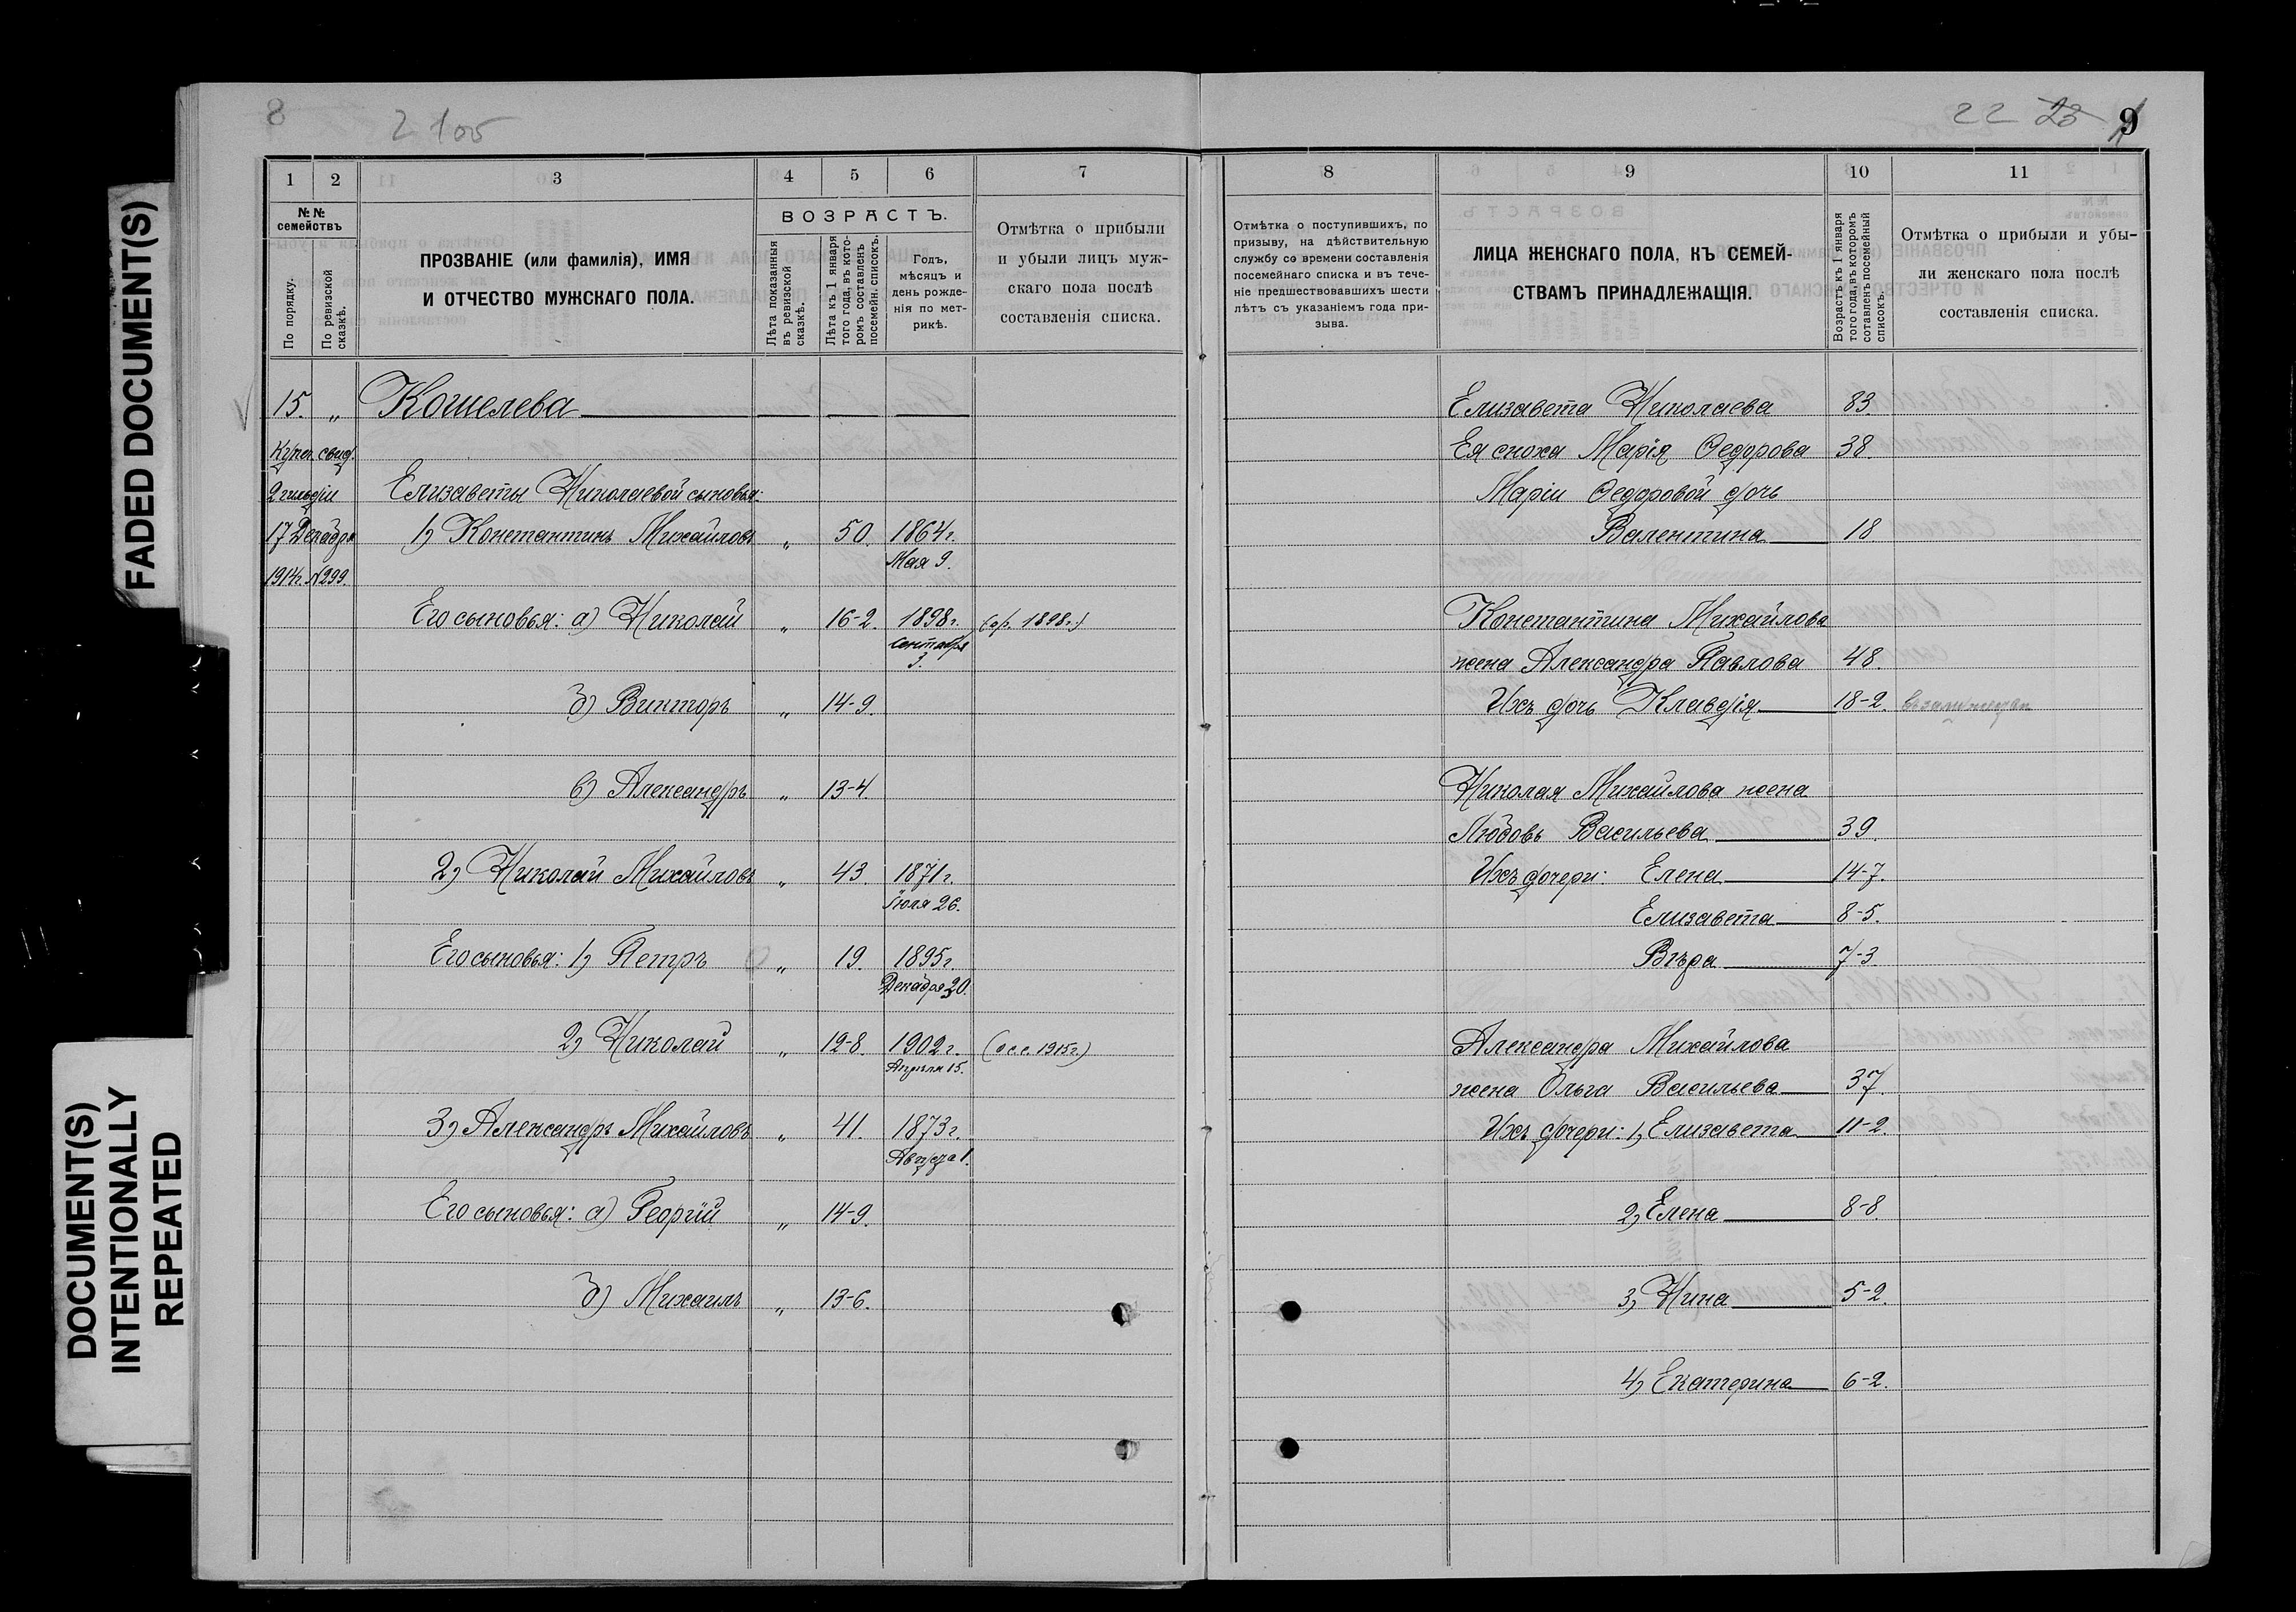 FADED DOCUMENT(S)
DOCUMENT(S)
INTENTIONALLY
REPEATED
8
2 100
1 2 3 4 5 6 7
№№ семействъ
По порядку.
По ревизской сказкѣ.
ПРОЗВАНІЕ (или фамилія), ИМЯ
И ОТЧЕСТВО МУЖСКАГО ПОЛА.
ВОЗРАСТЪ.
Лѣта показанныя въ ревизской сказкѣ.
Лѣта къ 1 января того года, въ которомъ составленъ посемейн. списокъ.
Годъ, мѣсяцъ и день рожденія по метрикѣ.
Отмѣтка о прибыли
и убыли лицъ муж-
скаго пола послѣ
составленія списка.
15. „ Кошелева
Купеч. свид.
2 гильдіи Елизаветы Николаевой сыновья:
17 Декабря 1) Константинъ Михайловъ „ 50. 1864 г.
Мая 9.
1914 г. №299.
Его сыновья: а) Николай „ 16-2. 1898 г. (ср. 1898 г.)
Сентября
3.
б) Викторъ „ 14-9.
в) Александръ „ 13-4
2) Николай Михайловъ „ 43. 1871 г.
Іюля 26.
Его сыновья: 1) Петръ „ 19. 1895 г.
Декабря 20.
2) Николай „ 12-8. 1902 г. (все. 1915 г.)
Апрѣля 15.
3) Александръ Михайловъ „ 41. 1873 г.
Августа 1.
Его сыновья: а) Георгій „ 14-9.
б) Михаилъ „ 13-6.
22 23 9
8 9 10 11
Отмѣтка о поступившихъ, по
призыву, на дѣйствительную
службу со времени составленія
посемейнаго списка и въ тече-
ніе предшествовавшихъ шести
лѣтъ съ указаніемъ года при-
зыва.
ЛИЦА ЖЕНСКАГО ПОЛА, КЪ СЕМЕЙ-
СТВАМЪ ПРИНАДЛЕЖАЩІЯ.
Возрастъ къ 1 января того года, въ которомъ составленъ посемейный списокъ.
Отмѣтка о прибыли и убы-
ли женскаго пола послѣ
составленія списка.
Елизавета Николаева 83.
Ея сноха Марія Ѳедорова 38.
Маріи Ѳедоровой дочь
Валентина 18
Константина Михайлова
жена Александра Павлова 48.
Ихъ дочь Клавдія 18-2.
Николая Михайлова жена
Любовь Васильева 39
Ихъ дочери: Елена 14-7.
Елизавета 8-5.
Вѣра 7-3
Александра Михайлова
жена Ольга Васильева 37.
Ихъ дочери: 1) Елизавета 11-2.
2) Елена 8-8
3) Нина 5-2.
4) Екатерина 6-2.